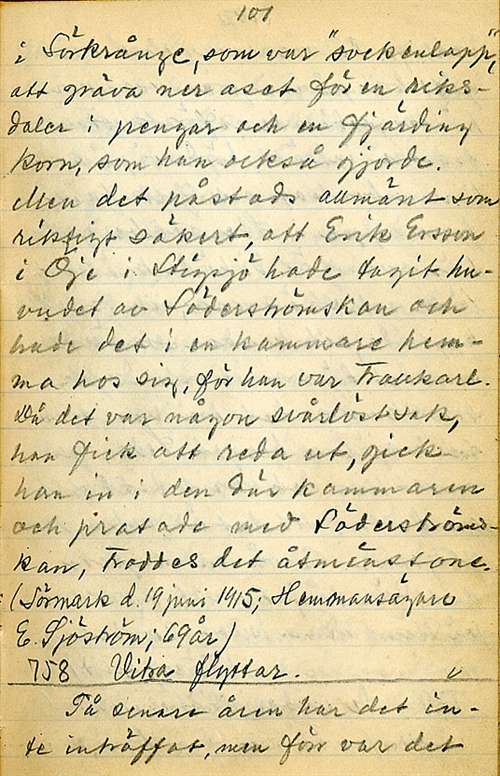 101
i Sörkrånge, som var "sockenlapp",
att gräva ner aset för en riks-
daler i pengar och en fjärding
korn, som han också gjorde.
Men det påstads allmänt som
riktigt säkert, att Erik Ersson
i Öje i Stigsjö hade tagit hu-
vudet av Söderströmskan och
hade det i en kammare hem-
ma hos sig, för han var Trollkarl.
Då det var någon svårlöst sak,
han fick att reda ut, gick
han in i den där kammaren
och pratade med Söderströms-
kan, troddes det åtminstone.
(Sörmark d. 19 juni 1915; Hemmansägare
E. Sjöström; 69 år)
758 Vitra flyttar. v
På senare åren har det in-
te inträffat, men förr var det